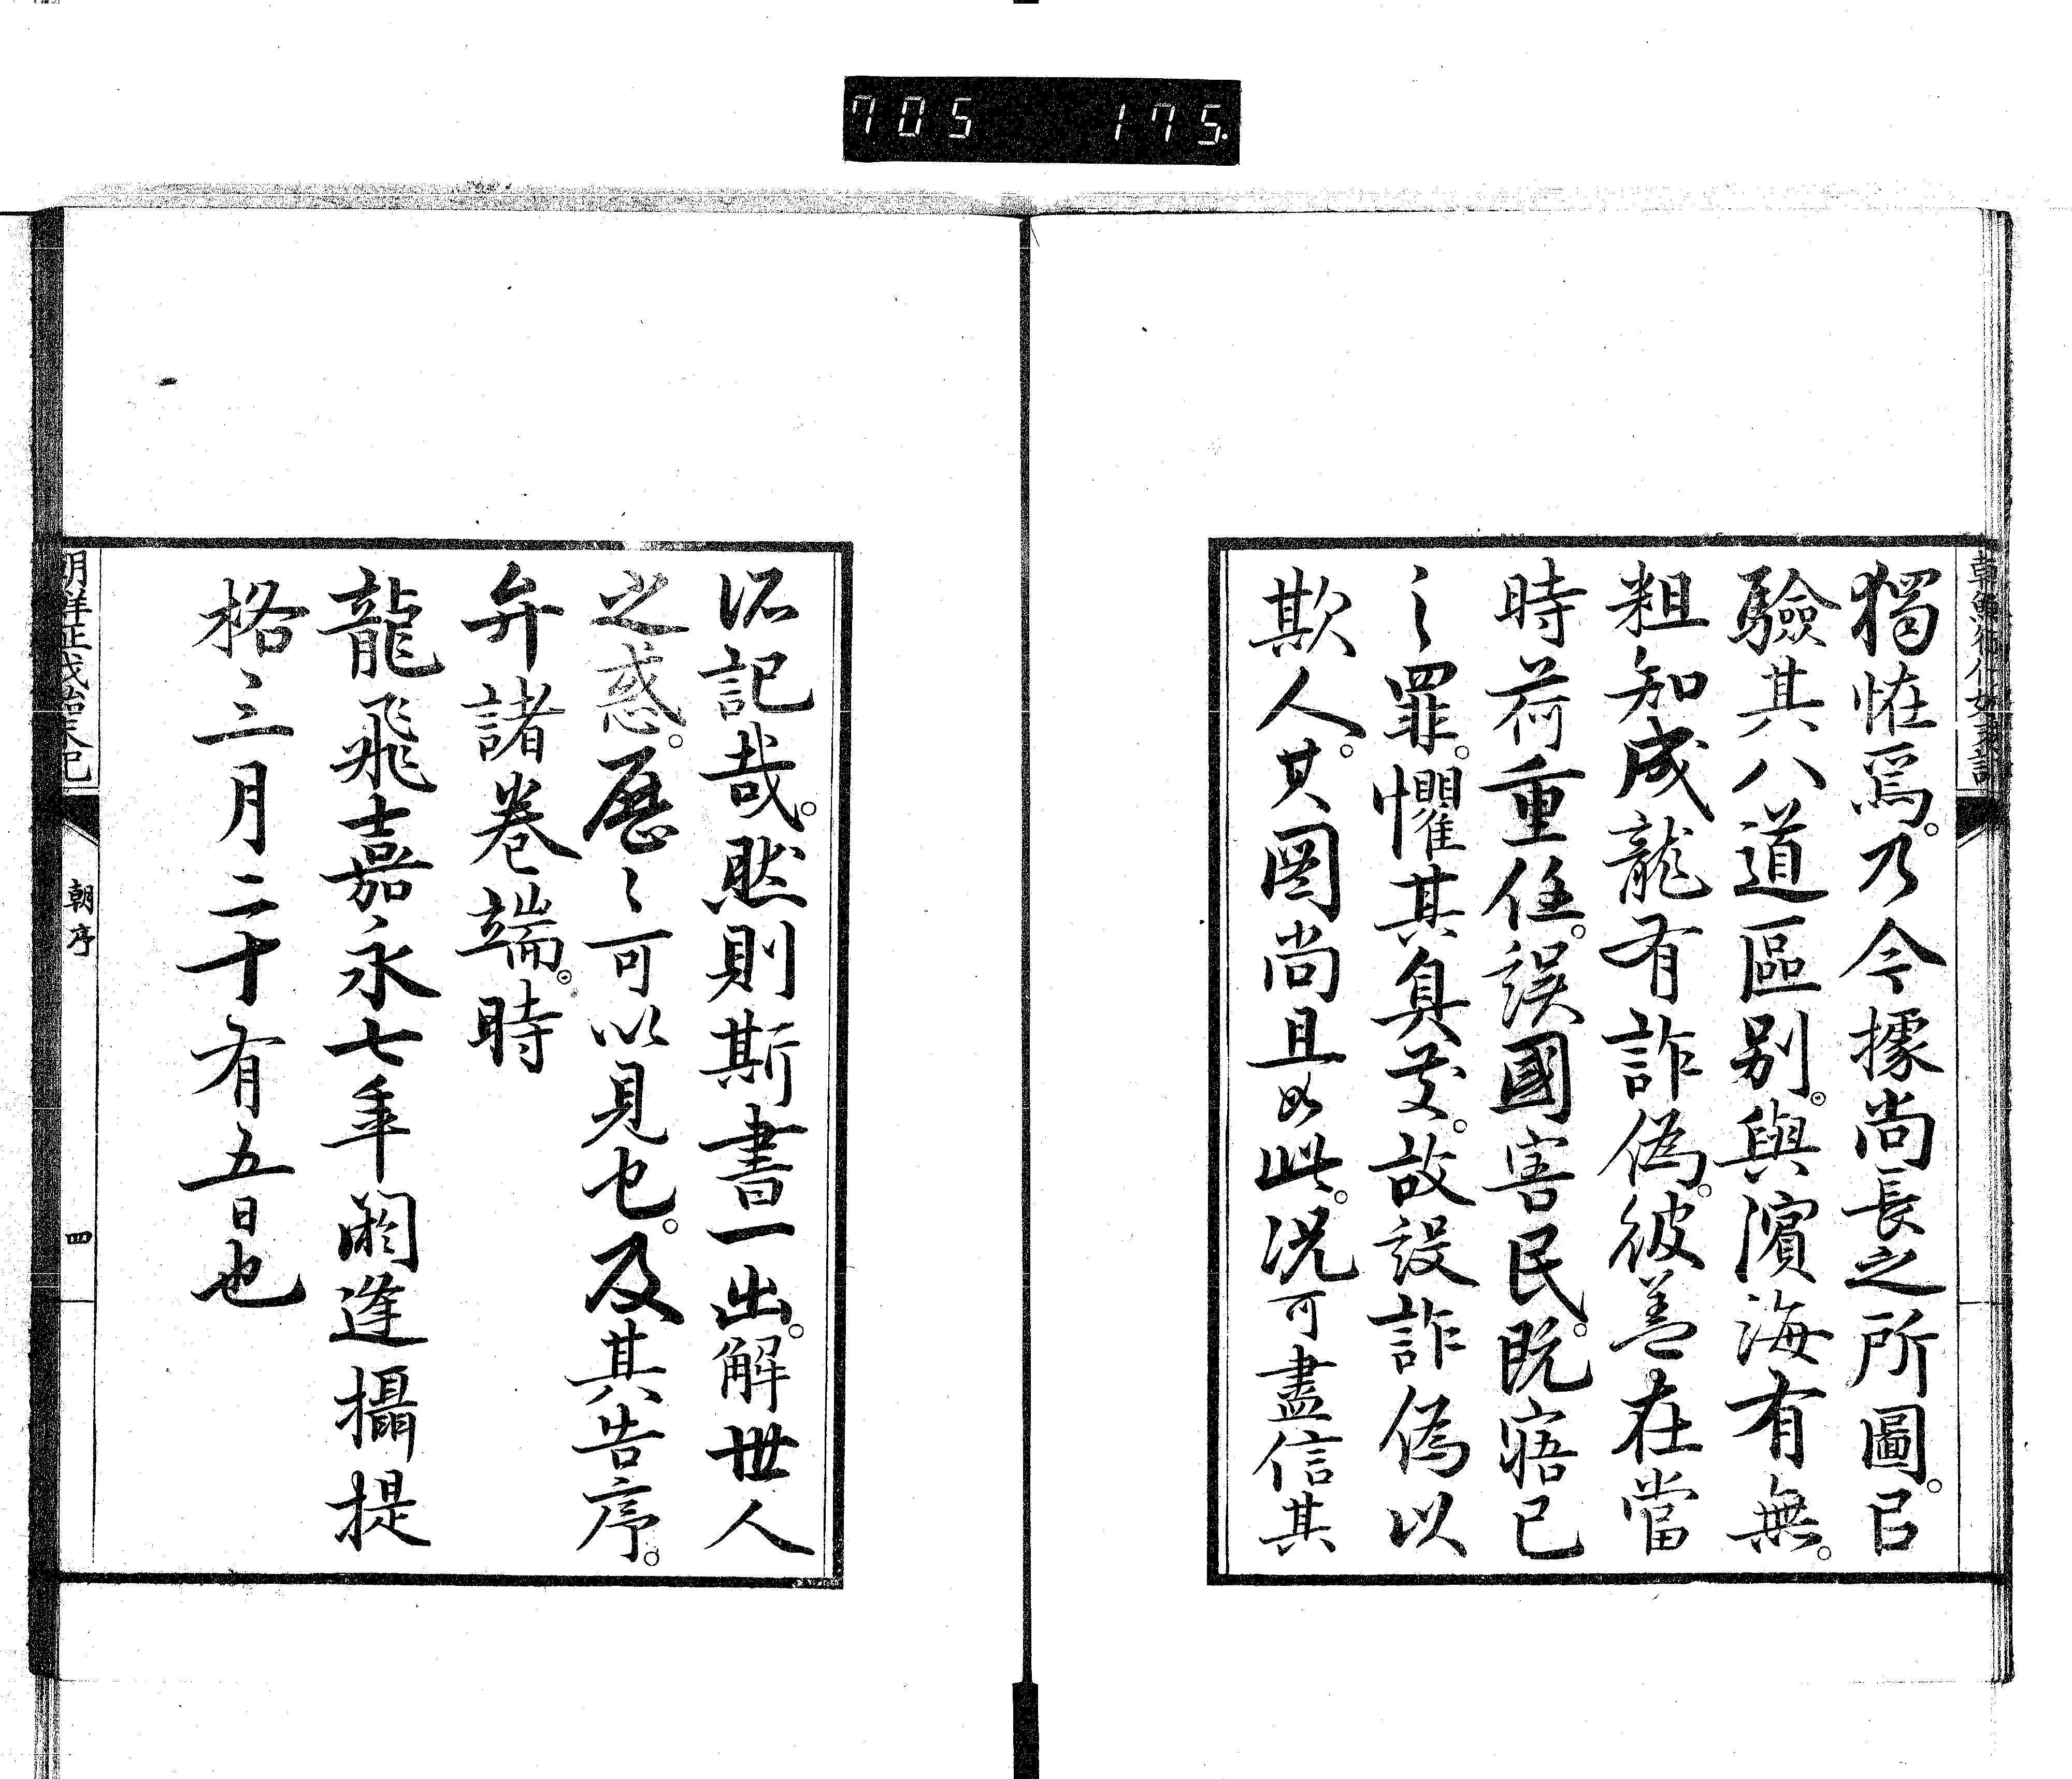 705 175.
獨恠焉。乃今據尚長之所圖。㠯
驗其八道區別。與濱海有無。
粗知成龍有詐偽。彼盖在當
時荷重任。誤國害民。既寤已
之罪。懼其負交。故設詐偽以
欺人。其圖尚且如此。况可盡信其
所記哉。然則斯書一出。解世人
之惑。歴々可以見也。及其告序。
弁諸卷端。時
龍飛嘉永七年閼逢攝提
格三月二十有五日也
朝鮮征伐始末記
朝序
四